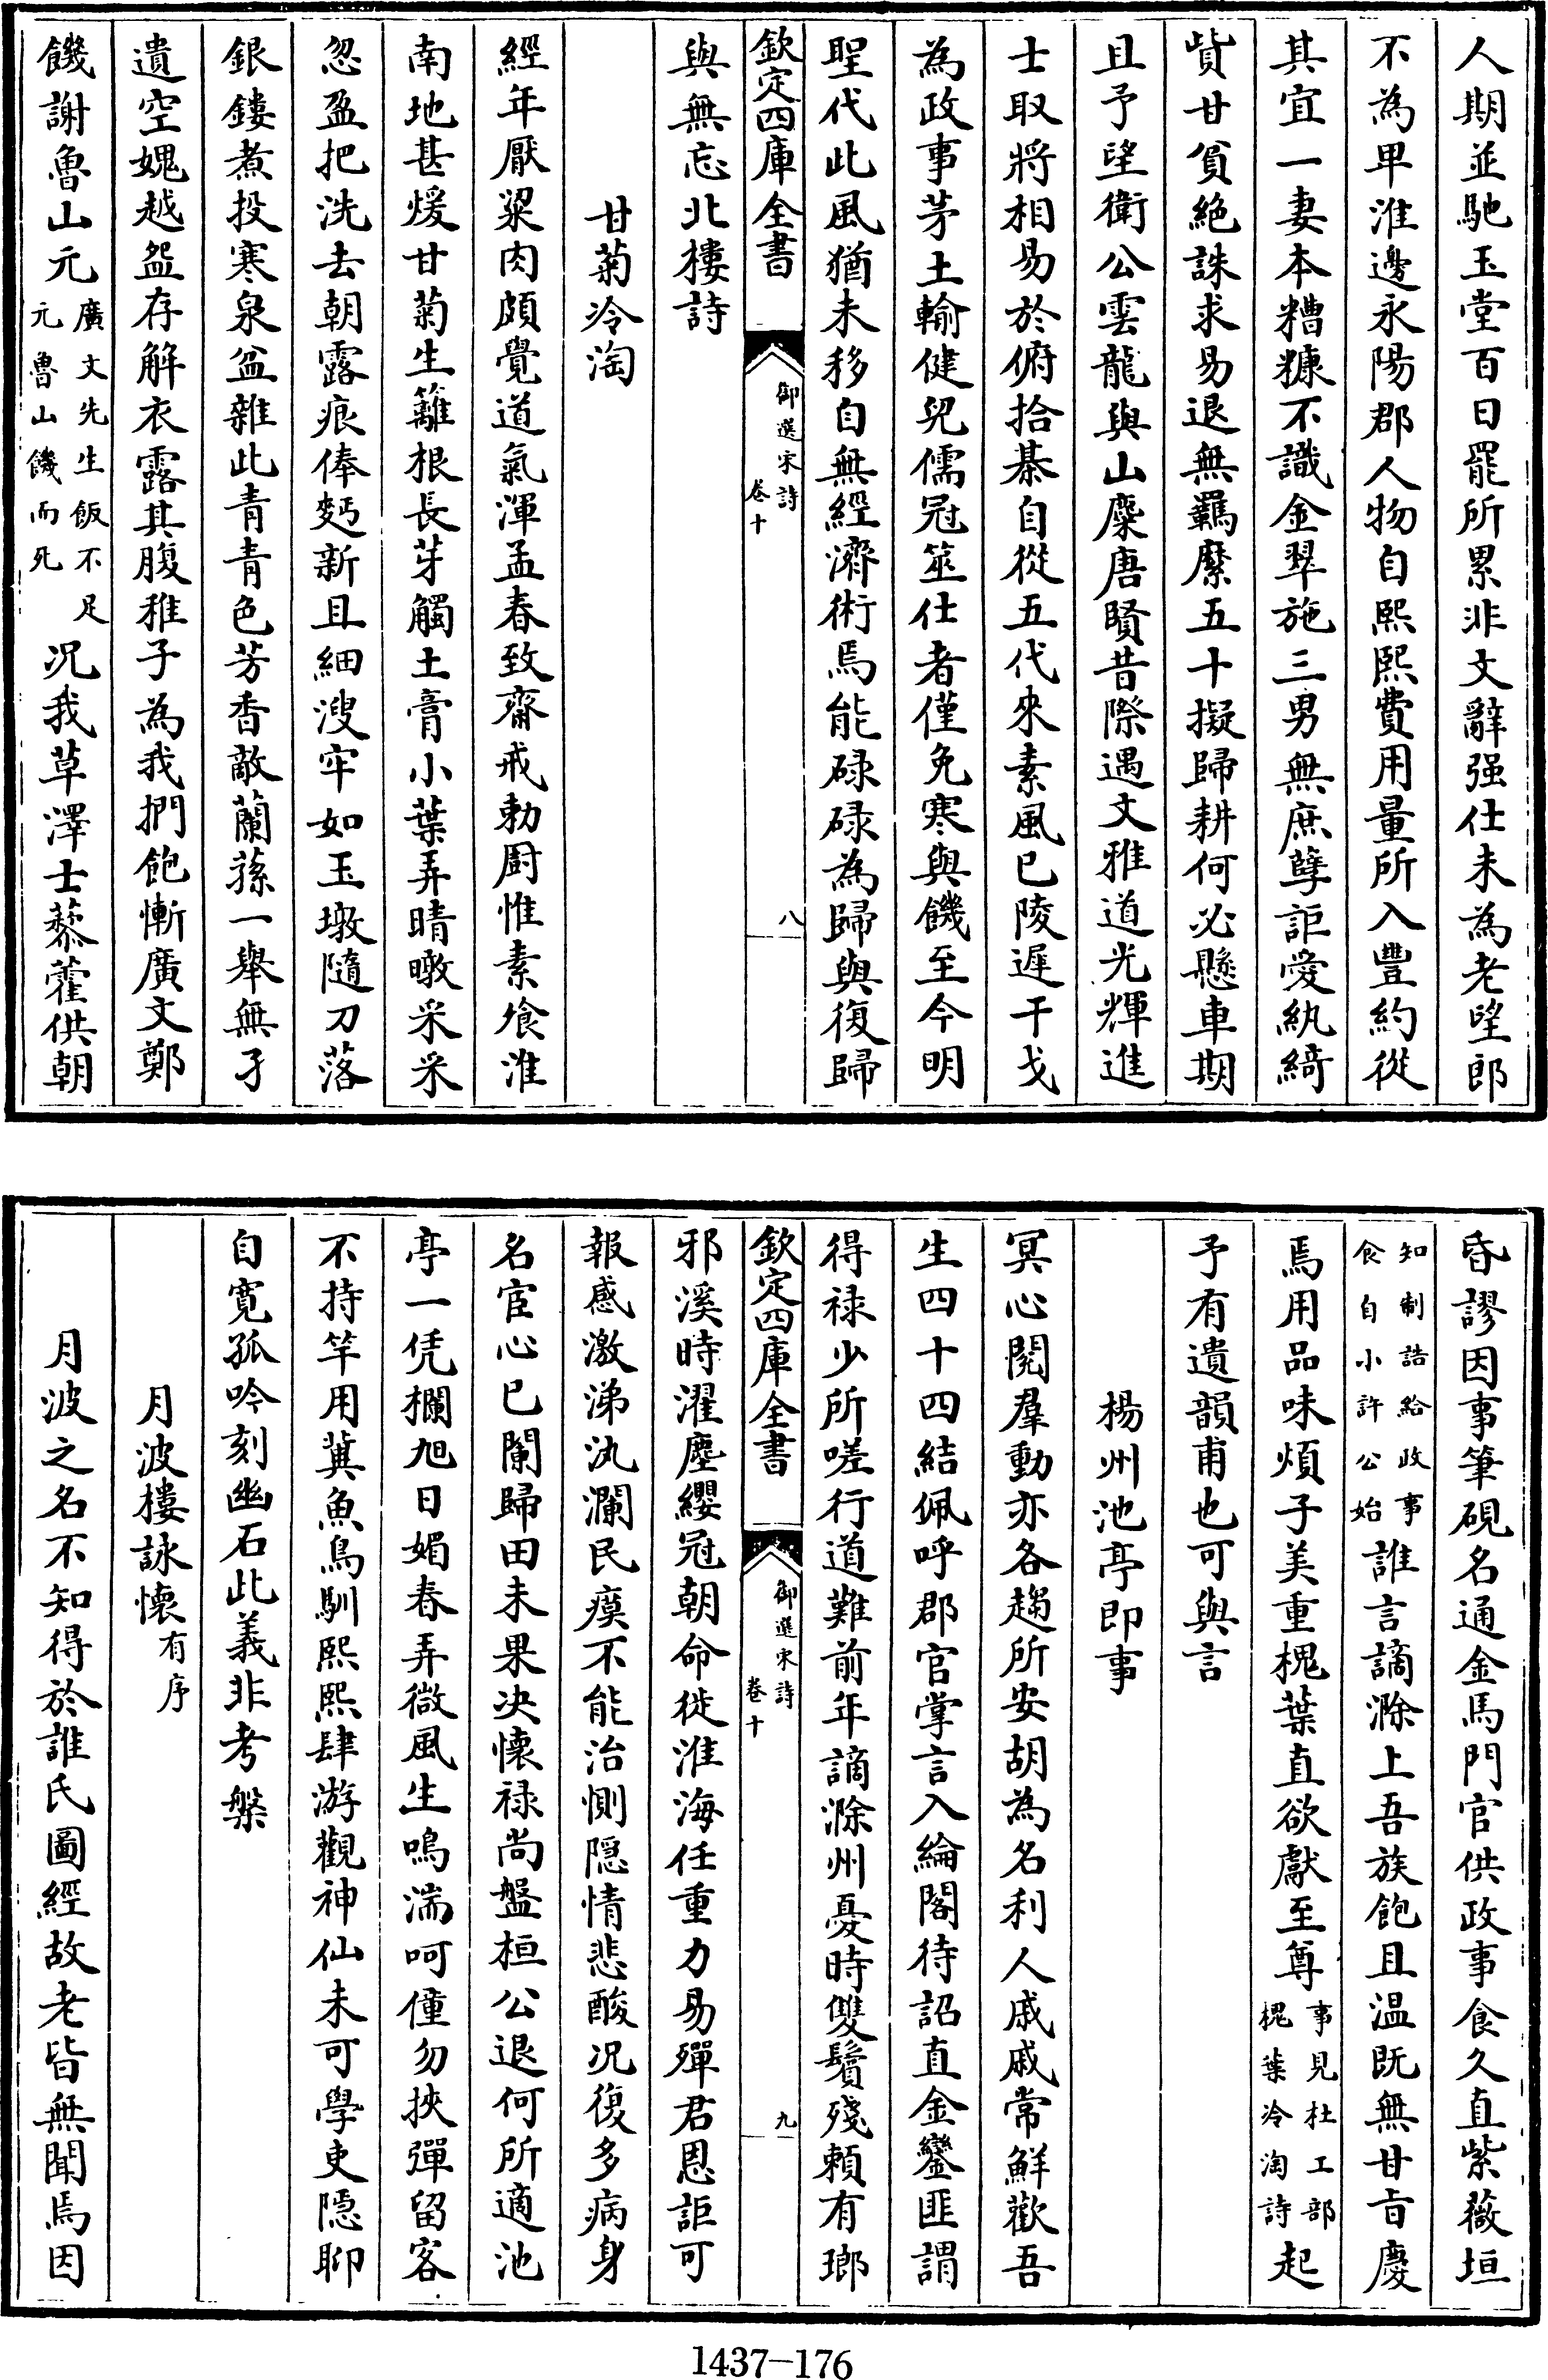 人期並馳玉堂百日罷所累非文辭强仕未為老望郎
不為卑淮邊永陽郡人物自熙熙費用量所入豐約從
其宜一妻本糟糠不識金翠施三男無庶孽詎愛紈綺
貲甘貧絶誅求易退無羈縻五十擬歸耕何必懸車期
且予望衛公雲龍與山麋唐賢昔際遇文雅道光輝進
士取將相易於俯拾綦自從五代來素風已陵遲干戈
為政事茅土輸健兒儒冠筮仕者僅免寒與饑至今明
聖代此風猶未移自無經濟術焉能碌碌為歸與復歸
欽定四庫全書
御選宋詩
卷十
八
與無忘北樓詩
甘菊冷淘
經年厭粱肉頗覺道氣渾孟春致齋戒勅厨惟素飱淮
南地甚煖甘菊生籬根長芽觸土膏小葉弄晴暾采采
忽盈把洗去朝露痕俸麪新且細溲牢如玉墩隨刀落
銀鏤煮投寒泉盆雜此青青色芳香敵蘭蓀一舉無孑
遺空媿越盌存解衣露其腹稚子為我捫飽慚廣文鄭
饑謝魯山元廣文先生飯不足元魯山饑而死況我草澤士藜藿供朝
昏謬因事筆硯名通金馬門官供政事食久直紫薇垣
知制誥給政事食自小許公始誰言謫滁上吾族飽且温既無甘旨慶
焉用品味煩子美重槐葉直欲獻至尊事見杜工部槐葉冷淘詩起
予有遺韻甫也可與言
楊州池亭即事
冥心閱羣動亦各趨所安胡為名利人戚戚常鮮歡吾
生四十四結佩呼郡官掌言入綸閣待詔直金鑾匪謂
得祿少所嗟行道難前年謫滁州憂時雙鬢殘賴有瑯
欽定四庫全書
御選宋詩
卷十
九
邪溪時濯塵纓冠朝命徙淮海任重力易殫君恩詎可
報感激涕汍瀾民瘼不能治惻隱情悲酸况復多病身
名宦心已闌歸田未果决懷祿尚盤桓公退何所適池
亭一凭欄旭日媚春弄微風生鳴湍呵僮勿挾彈留客
不持竿用冀魚鳥馴熙熙肆游觀神仙未可學吏隱聊
自寛孤吟刻幽石此義非考槃
月波樓詠懷有序
月波之名不知得於誰氏圖經故老皆無聞焉因
1437-176